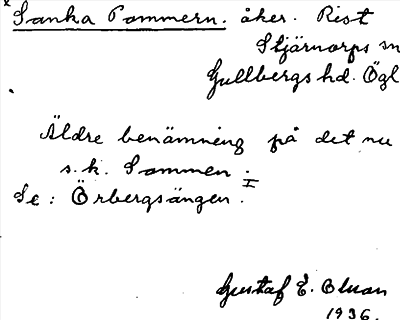 x Sanka Pommern. åker. Rist
Stjärnorps sn
Gullbergs hd. Ögl
Äldre benämning på det nu
s.k. Sommen I.
Se: Örbergsängen.
Gustaf E. Olsson
1936.